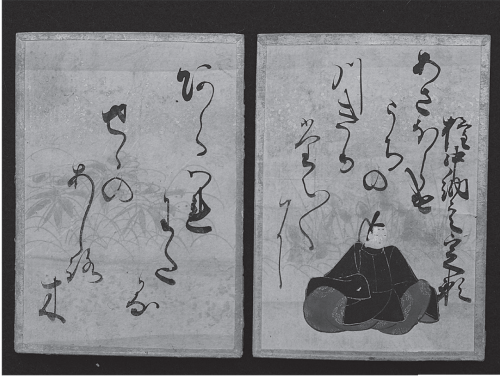 権中納言定頼
あさほらけ
うちの
川きり
たえ〱に
あらハれ
わたる
せゝの
あしろ
木